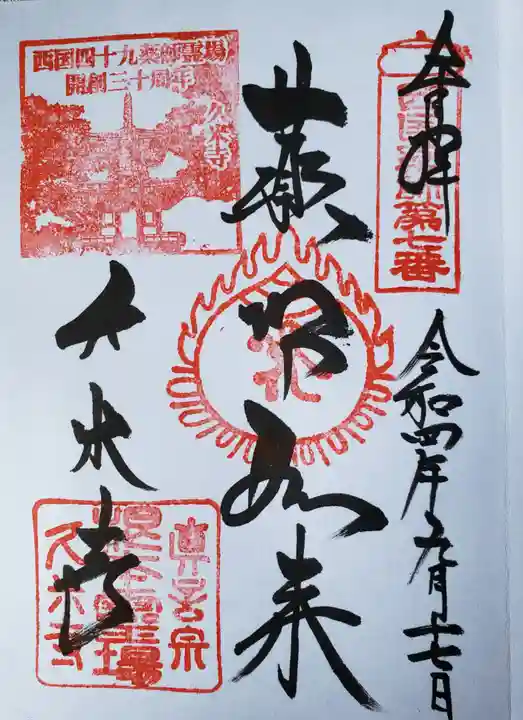 奉拝
第七番
令和四年九月十七日
薬師如来
西国四十九薬師霊場
開創三十周年
久米寺
久米寺
真言宗
久米寺